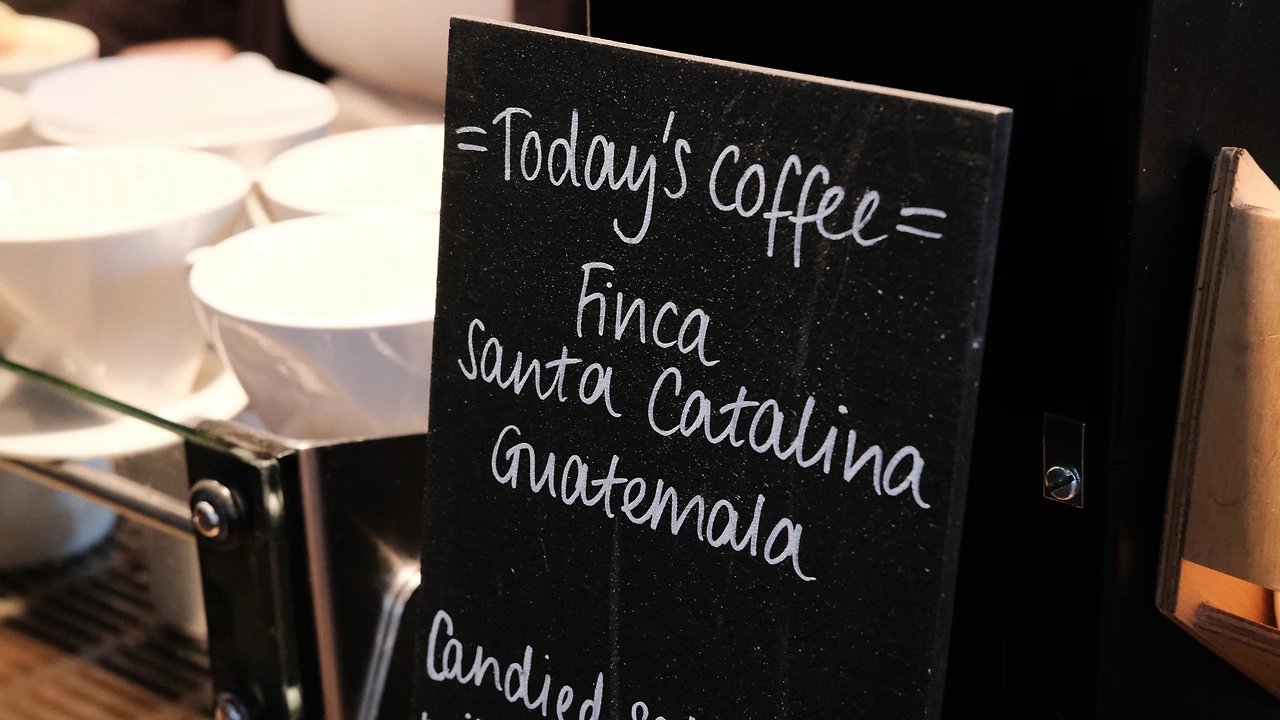 =Today's Coffee=
Finca
Santa Catalina
Guatemala
Candied